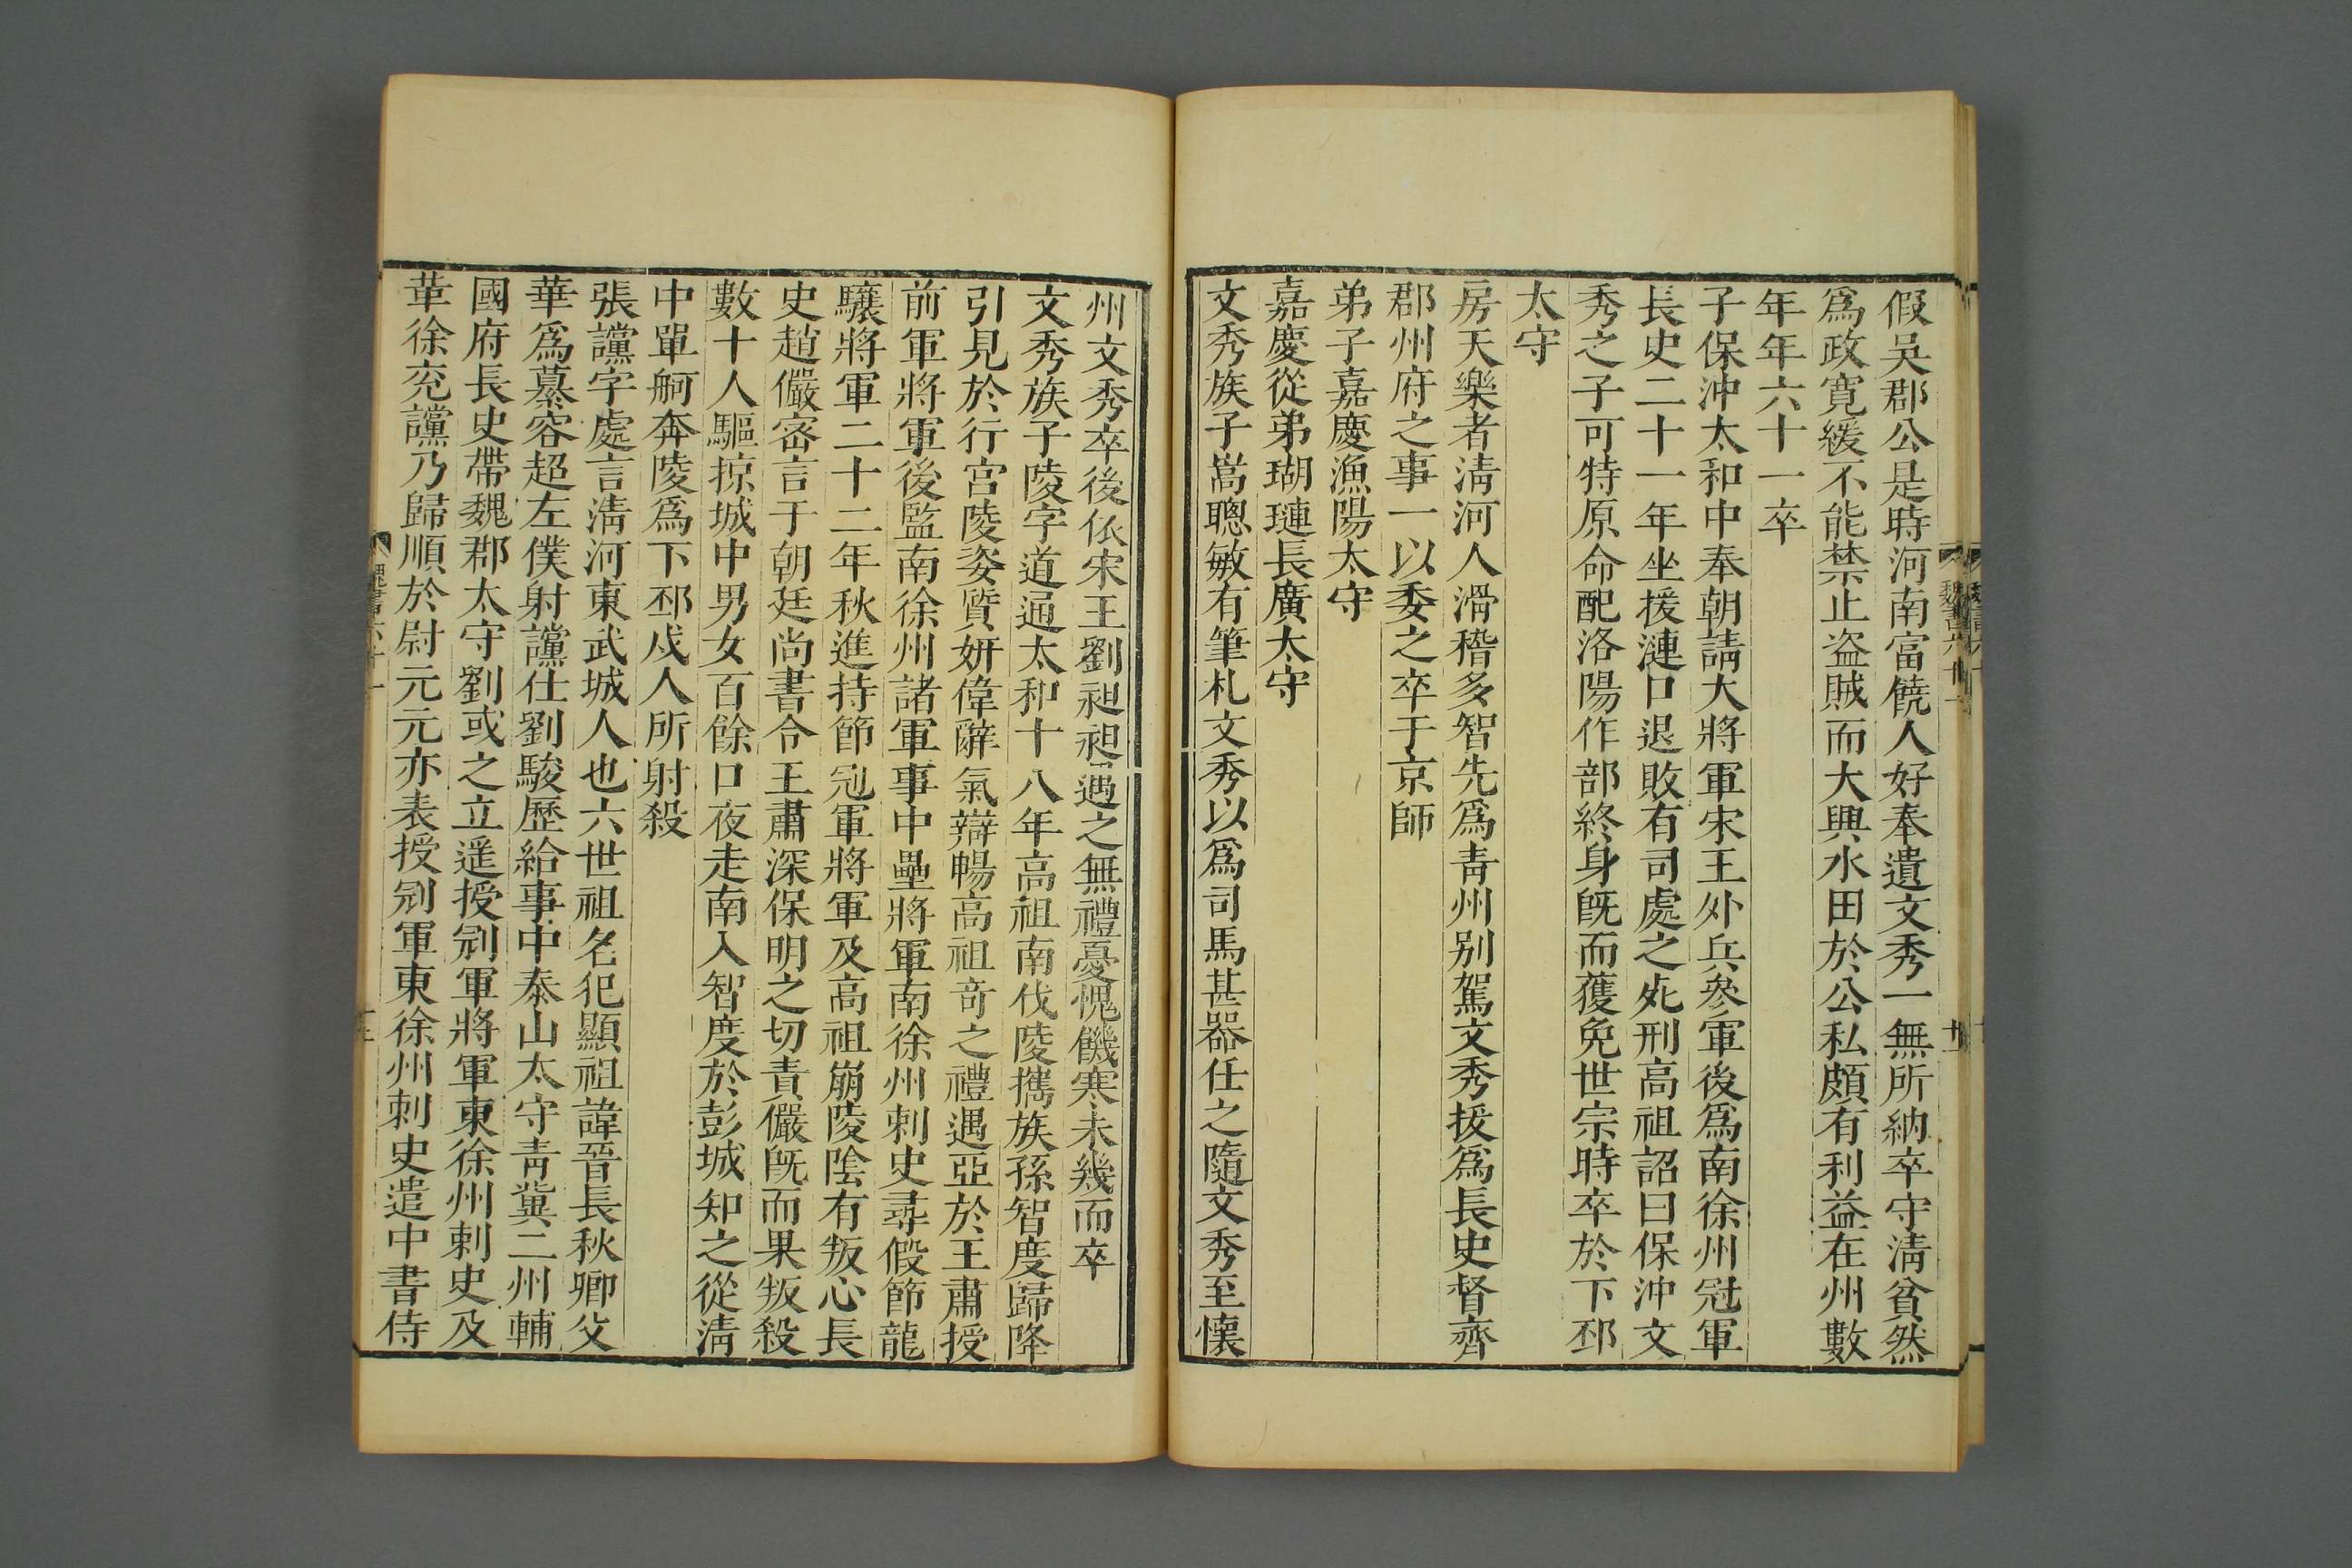 假吳郡公是時河南富饒人好奉遺文秀一無所納卒守淸貧然
爲政寬緩不能禁止盗賊而大興水田於公私頗有利益在州數
年年六十一卒
子保沖太和中奉朝請大將軍宋王外兵參軍後爲南徐州冠軍
長史二十一年坐援漣口退敗有司處之死刑高祖詔曰保沖文
秀之子可特原命配洛陽作部終身旣而獲免世宗時卒於下邳
太守
房天樂者淸河人滑稽多智先爲靑州别駕文秀拔爲長史督齊
郡州府之事一以委之卒于京師
弟子嘉慶漁陽太守
嘉慶從弟瑚璉長廣太守
文秀族子嵩聰敏有筆札文秀以爲司馬甚器任之隨文秀至懷
州文秀卒後依宋王劉昶昶遇之無禮憂愧飢寒未幾而卒
文秀族子陵字道通太和十八年高祖南伐陵攜族孫智度歸降
引見於行宮陵姿質妍偉辭氣辯暢高祖奇之禮遇亞於王肅授
前軍將軍後監南徐州諸軍事中壘將軍南徐州刺史尋假節龍
驤將軍二十二年秋進持節冠軍將軍及高祖崩陵陰有叛心長
史趙儼密言于朝廷尚書令王肅深保明之切責儼旣而果叛殺
數十人驅掠城中男女百餘口夜走南入智度於彭城知之從淸
中單舸奔陵爲下邳戍人所射殺
張讜字處言淸河東武城人也六世祖名犯顯祖諱晉長秋卿父
華爲慕容超左僕射讜仕劉駿歷給事中泰山太守靑冀二州輔
國府長史帶魏郡太守劉彧之立遥授冠軍將軍東徐州刺史及
革徐兖讜乃歸順於尉元元亦表授冠軍東徐州刺史遣中書侍